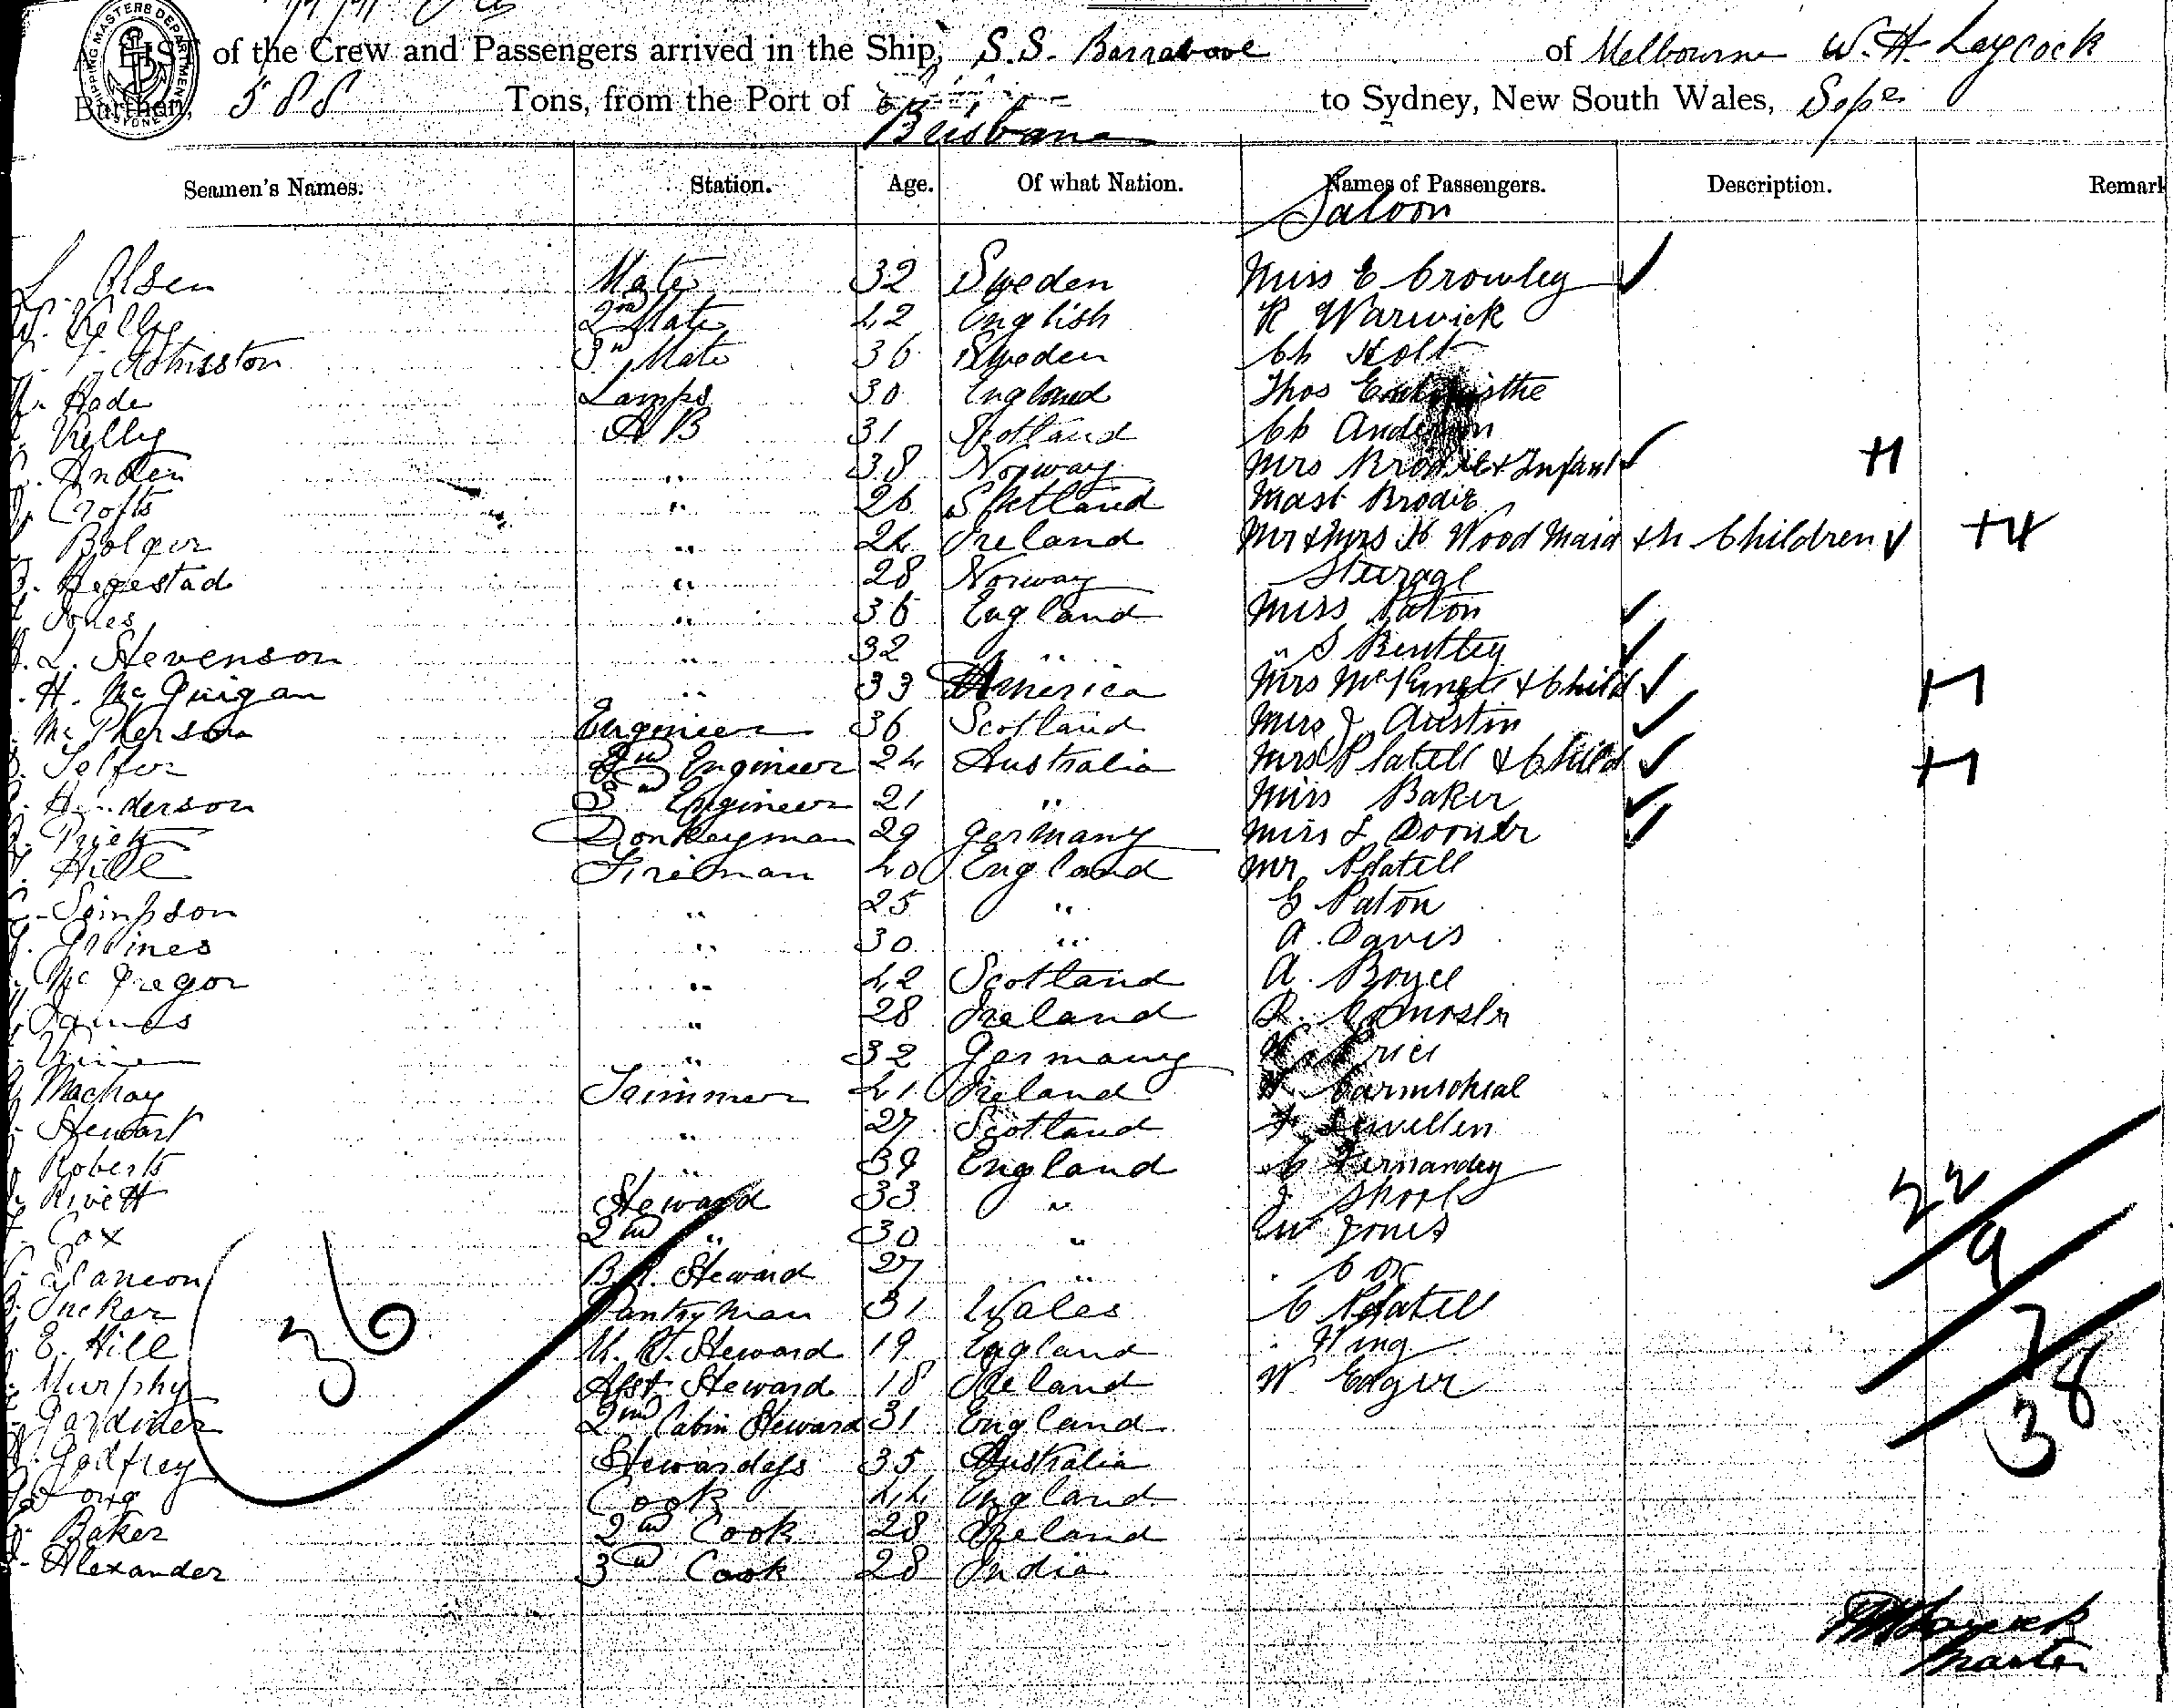 SHIPPING MASTERS DEPARTMENT SYDNEY
A LIST of the Crew and Passengers arrived in the Ship, S.S. Barrabool of Melbourne W. H. Laycock
Burthen, 588 Tons, from the Port of Brisbane to Sydney, New South Wales, Sept
Seamen's Names. Station. Age. Of what Nation. Names of Passengers. Description. Remark
Saloon
L. Olsen Mate 32 Sweden Miss E Crowley ✓
W. Kelly 2nd Mate 42 English R Warwick
Johnsston 3rd Mate 36 Sweden Ch Holt
Hade Lamps 30 England Thos
Kelly A B 31 Scotland Ch Anderson
Anden " 38 Norway Mrs Brodie + Infant ✓ +1
Crofts " 26 Shetland Mast Brodie
Bolger " 24 Ireland Mr & Mrs H Wood Maid + 4 Children ✓ +4
Hegestad " 28 Norway Steerage
Jones " 36 England Miss Paton ✓
L. Stevenson " 32 " " S Bentley ✓
H. McGuigan " 33 America Mrs & Child ✓ +1
McPherson Engineer 36 Scotland Mrs J Austin ✓
Telfer 2nd Engineer 24 Australia Mrs Platell & Child ✓ +1
Henderson 3rd Engineer 21 " Miss Baker ✓
Donkeyman 29 Germany Miss L ✓
Hill Fireman 40 England Mr Platell
Simpson " 25 " G Paton
" 30 " A. Davis
McGregor " 42 Scotland A. Boyce
James " 28 Ireland R.
" 32 Germany Price
Mackay Trimmer 41 Ireland Carmichial
Stewart " 27 Scotland Lewellen
Roberts " 39 England Fernandez
Rivett Steward 33 "
Cox 2nd " 30 " W Jones 22
B.R. Steward 27 " Cox 9
Tucker Pantryman 31 Wales C Platell 7
E. Hill Steward 19 England King
36 38
Murphy Asst Steward 18 Ireland W Edger
Gardiner 2nd Cabin Steward 31 England
Godfrey Stewardess 35 Australia
Long Cook 44 England
Baker 2nd Cook 28 Ireland
Alexander 3rd Cook 28 India
W H Laycock
Master